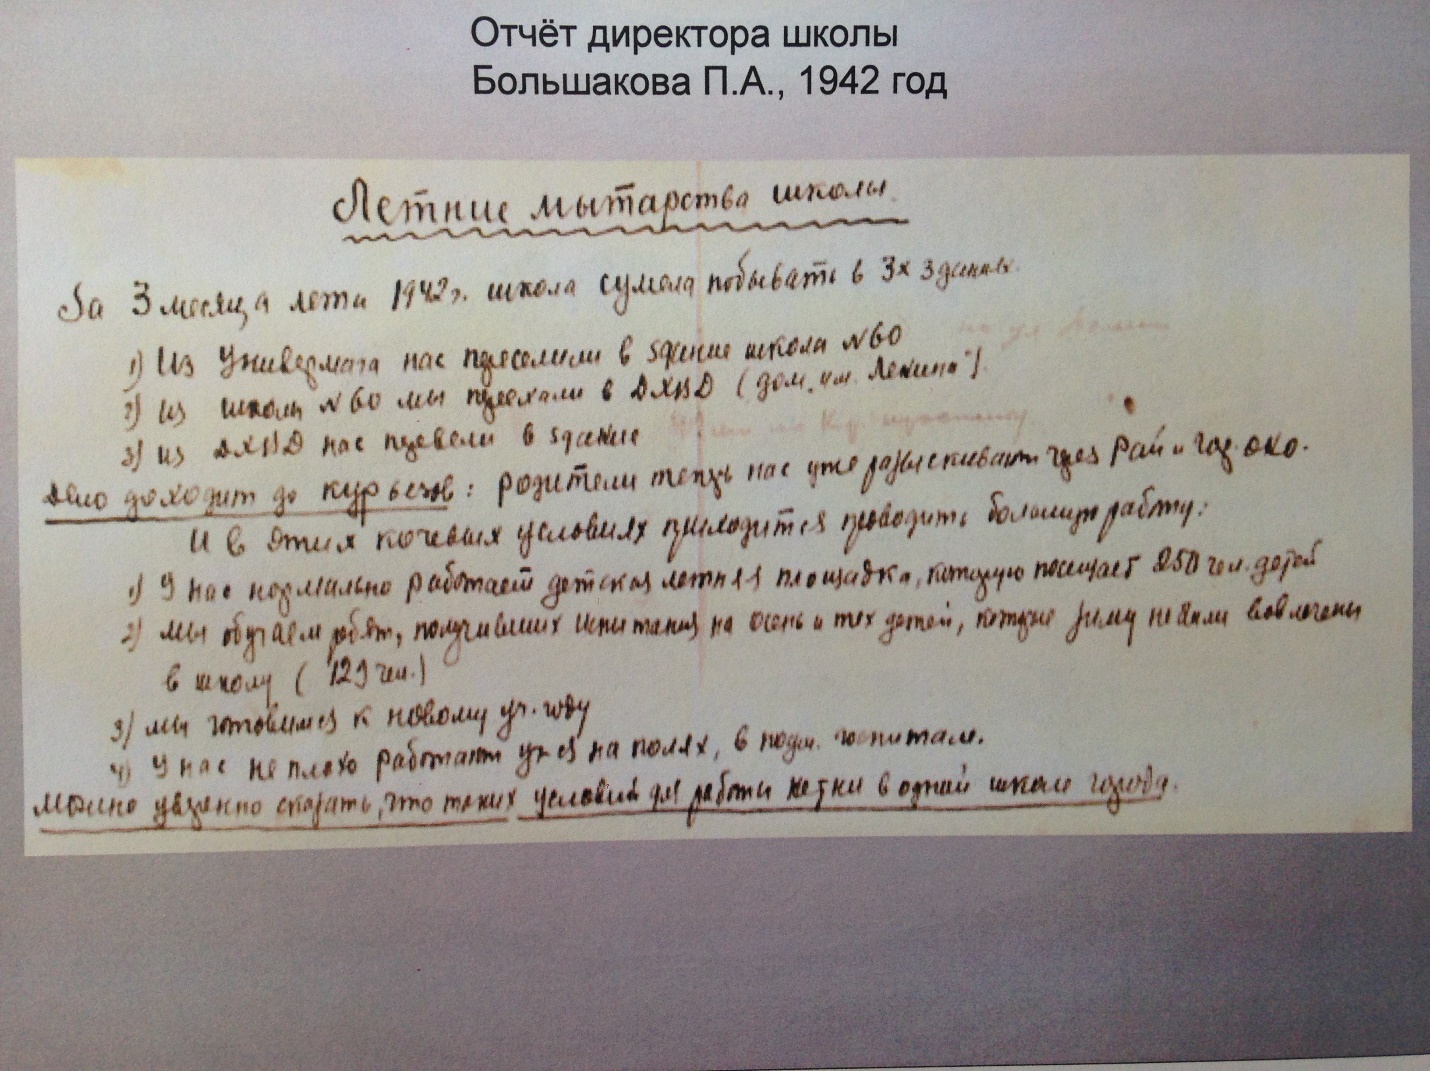 Отчёт директора школы
Большакова П.А., 1942 год
Летние мытарства школы.
За 3 месяца лета 1942г. школа сумела побывать в 3х зданиях.
1) Из Универмага нас переселили в здание школы №60
2) из школы №60 мы переехали в ДХВД (дом. им. Ленина").
3) из ДХВД нас перевели в здание
Дело доходит до курьезов: родители теперь нас уже разыскивают через Рай и Гор. оно.
И в этих кочевых условиях приходится проводить большую работу:
1) У нас нормально работает детская летняя площадка, которую посещает 250 чел. детей
2) мы обучаем ребят, получивших испытания на осень и тех детей, которые зиму не были вовлечены
в школу (129 чел.)
3) мы готовимся к новому уч. году
4) У нас не плохо работают уч-ся на полях, в подш. госпитале.
Можно уверенно сказать, что таких условий для работы нет ни в одной школе города.